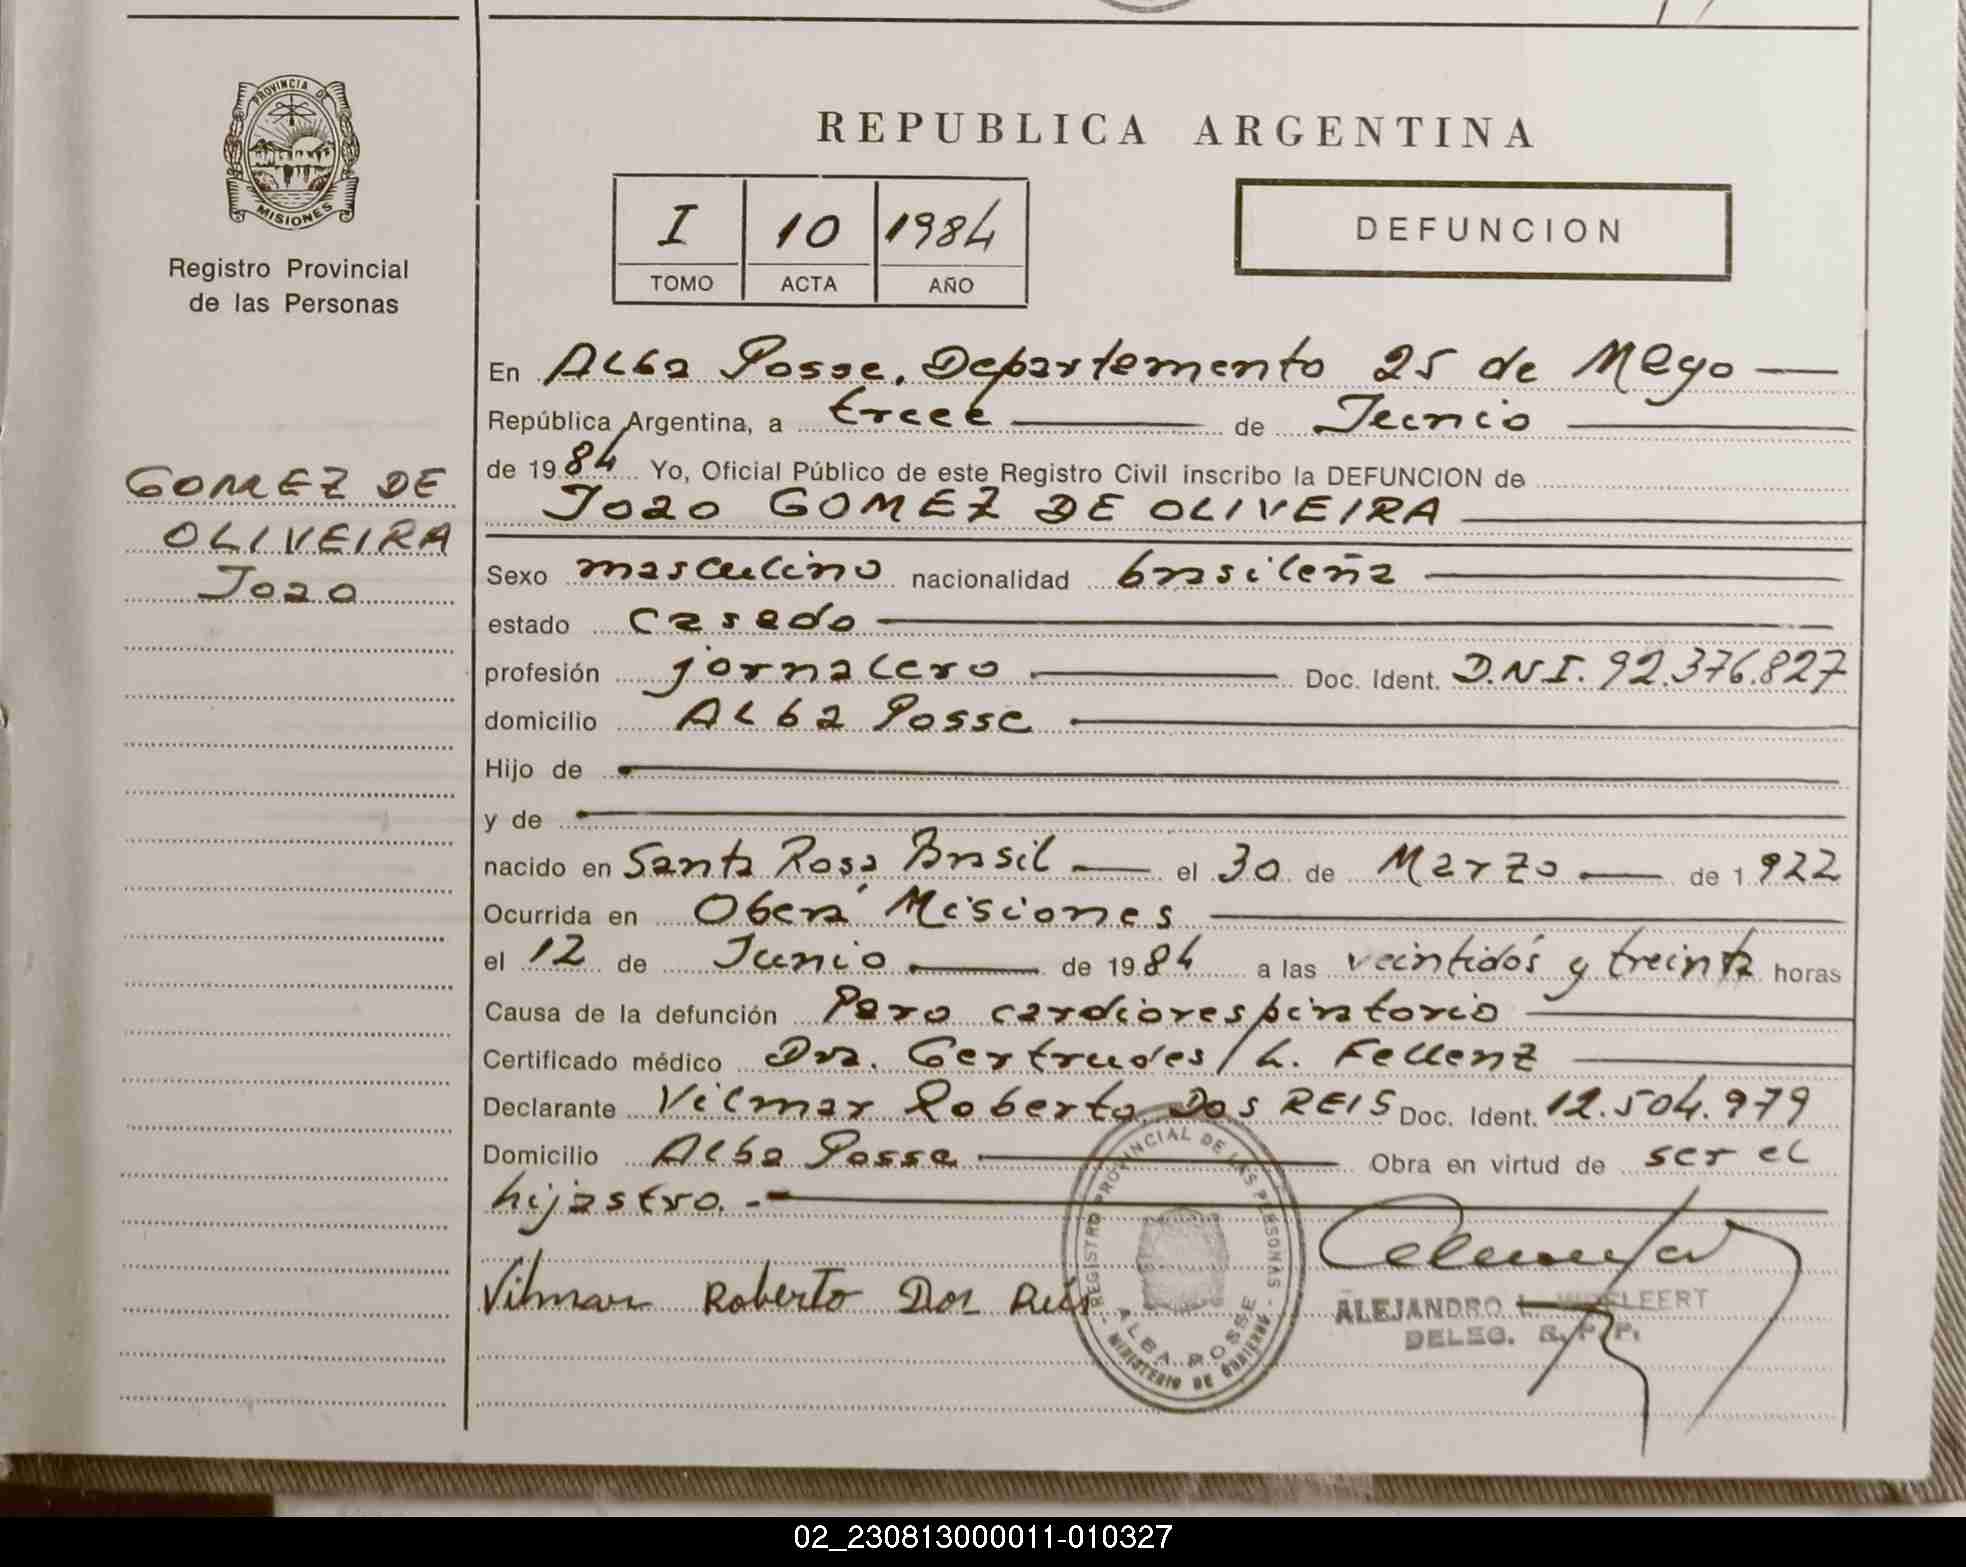 PROVINCIA DE
MISIONES
Registro Provincial
de las Personas
GOMEZ DE
OLIVEIRA
Joao
REPUBLICA ARGENTINA
I 10 1984
TOMO ACTA AÑO
DEFUNCION
En Alba Posse, Departamento 25 de Mayo
República Argentina, a trece de Junio
de 1984 Yo, Oficial Público de este Registro Civil inscribo la DEFUNCION de
Joao GOMEZ DE OLIVEIRA
Sexo masculino nacionalidad brasileña
estado casado
profesión jornalero Doc. Ident. D.N.I. 92.376.827
domicilio Alba Posse
Hijo de
y de
nacido en Santa Rosa, Brasil el 30 de Marzo de 1922
Ocurrida en Oberá Misiones
el 12 de Junio de 1984 a las veintidós y treinta horas
Causa de la defunción Paro cardiorespiratorio
Certificado médico Dra. Gertrudes L. Fellenz
Declarante Vilmar Roberto DOS REIS Doc. Ident. 12.504.979
Domicilio Alba Posse Obra en virtud de ser el
hijastro.-
Vilmar Roberto Dos Reis
REGISTRO PROVINCIAL DE LAS PERSONAS
ALBA POSSE
MINISTERIO DE GOBIERNO
ALEJANDRO L.
DELEG. R. P. P.
02_230813000011-010327